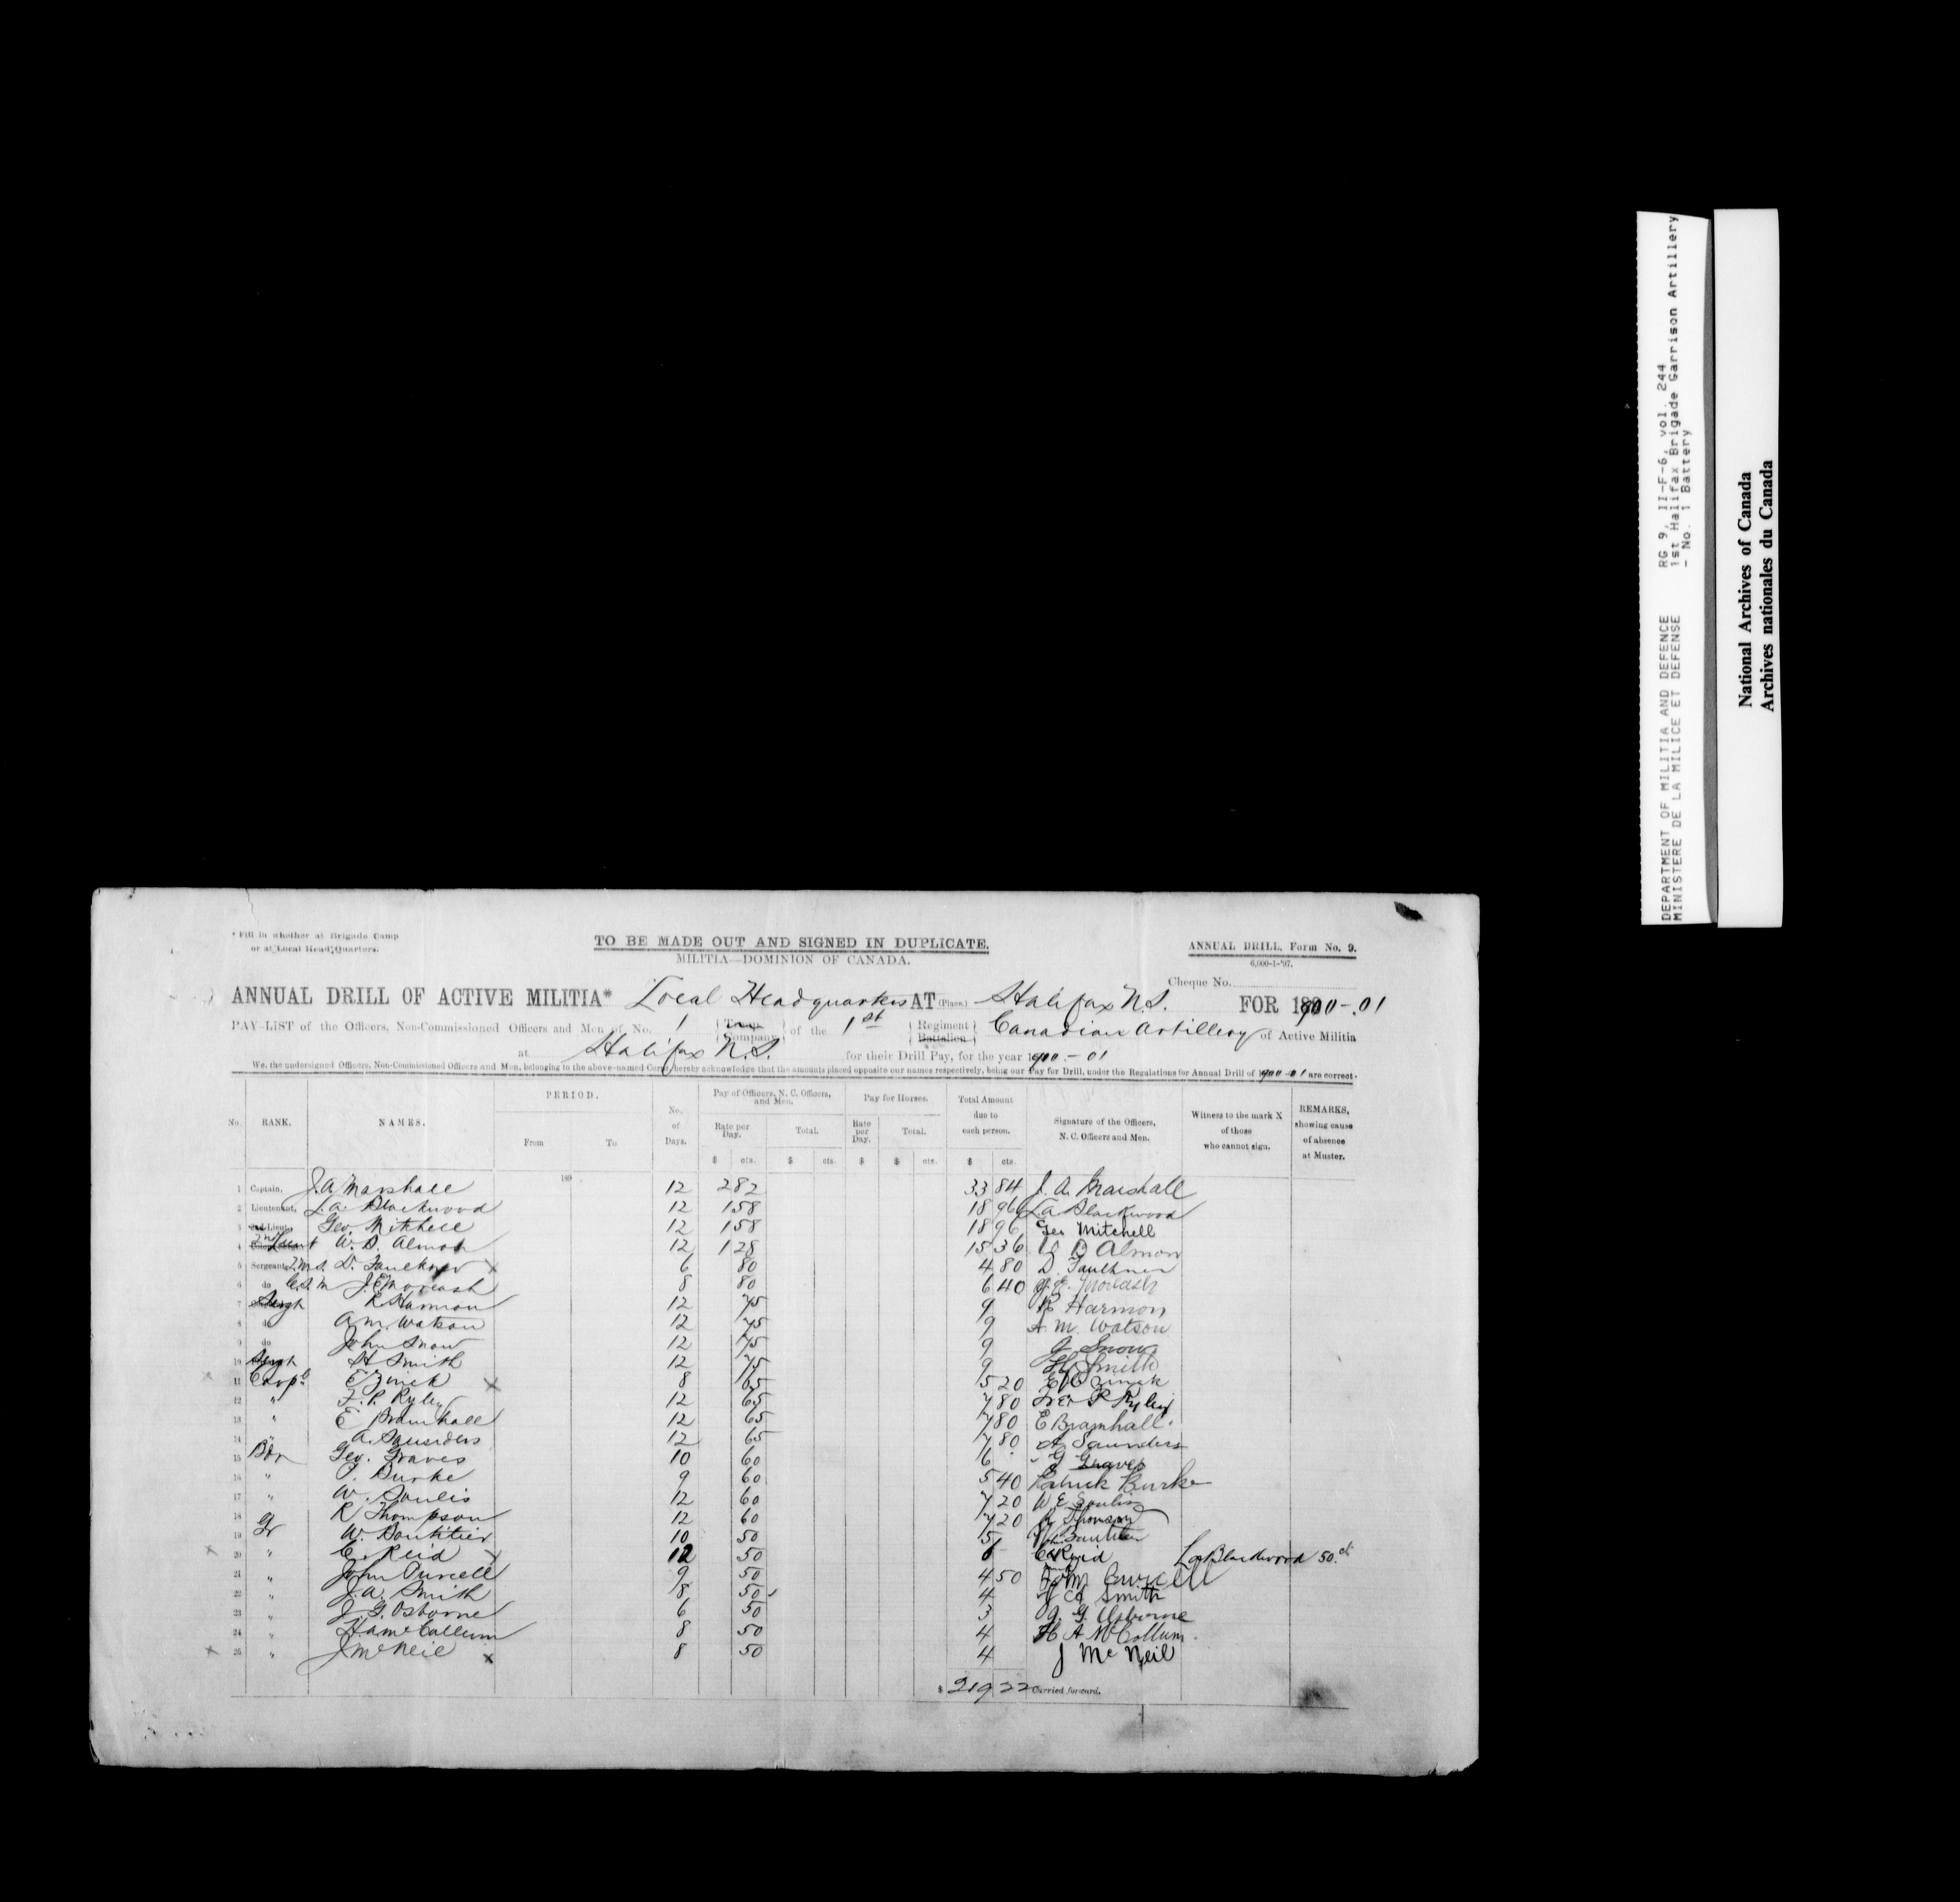 * Fill in whether at Brigade Camp
or at Local Head Quarters.
TO BE MADE OUT AND SIGNED IN DUPLICATE.
MILITIA—DOMINION OF CANADA.
ANNUAL DRILL, Form No. 9.
6,000-1-'97.
Cheque No.
ANNUAL DRILL OF ACTIVE MILITIA* Local Headquarters AT (Place.) Halifax N.S. FOR 1900-01
PAY-LIST of the Officers, Non-Commissioned Officers and Men of No. 1 Troop Company of the 1st Regiment Battalion Canadian Artillery of Active Militia
at Halifax N.S. for their Drill Pay, for the year 1900-01
We, the undersigned Officers, Non-Commissioned Officers and Men, belonging to the above-named Corps, hereby acknowledge that the amounts placed opposite our names respectively, being our Pay for Drill, under the Regulations for Annual Drill of 1900-01 are correct.
No. RANK. NAMES. PERIOD. From To No. of Days. Pay of Officers, N. C. Officers, and Men. Rate per Day. Total. Pay for Horses. Rate per Day. Total. Total Amount due to each person. Signature of the Officers, N. C. Officers and Men. Witness to the mark X of those who cannot sign. REMARKS, showing cause of absence at Muster.
$ cts. $ cts. $ $ cts. $ cts.
189
1 Captain, J.A. Marshall 12 2 82 33 84 J. A. Marshall
2 Lieutenant, L.A. Blackwood 12 1 58 18 96 L.A. Blackwood
3 2nd Lieut., Geo. Mitchell 12 1 58 18 96 Geo Mitchell
4 2nd Lieut W. D. Almon 12 1 28 15 36 W D Almon
5 Sergeant, Q.M.S. D. Faulkner x 6 80 4 80 D. Faulkner
6 do C.S.M J.E. Morash 8 80 6 40 J.E. Morash
7 Sergt R. Harmon 12 75 9 R Harmon
8 do A.M. Watson 12 75 9 A. M. Watson
9 do John Snow 12 75 9 J Snow
10 Sergt H Smith 12 75 9 H Smith
11 Corpl E Zinck x 8 65 5 20 E Zinck
12 " F. P. Ryley 12 65 7 80 Fred P Ryley
13 " E Bramhall 12 65 7 80 E Bramhall.
14 " A. Saunders 12 65 7 80 A Saunders
15 Bdr Geo. Graves 10 60 6 G Graves
16 " P. Burke 9 60 5 40 Patrick Burke
17 " W. Soulis 12 60 7 20 W E Soulis
18 R Thompson 12 60 7 20 R Thomson
19 Gr W. Boutilier 10 50 5 Boutilier
x 20 " C. Reid x 12 50 6 C Reid L A Blackwood 50 ct
21 " John Purcell 9 50 4 50 John Purcell
22 " J. A. Smith 8 50 4 J A Smith
23 " J. G. Osborne 6 50 3 J. G. Osborne
24 " H.A. McCallum 8 50 4 H A McCollum.
x 25 " J McNeil x 8 50 4 J McNeil
$ 219 22 Carried forward.
DEPARTMENT OF MILITIA AND DEFENCE RG 9, II-F-6, vol. 244
MINISTERE DE LA MILICE ET DEFENSE 1st Halifax Brigade Garrison Artillery
- No. 1 Battery
National Archives of Canada
Archives nationales du Canada